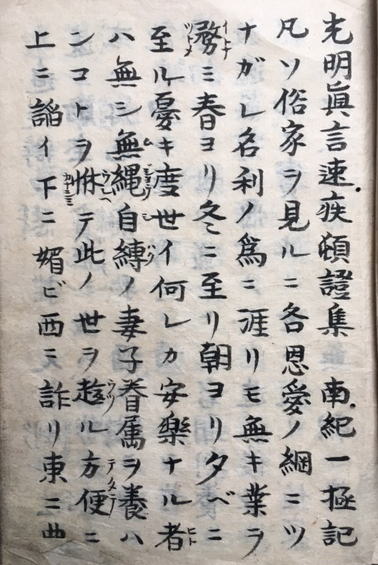 光明眞言速疾頓證集 南紀一極記
凡ソ俗家ヲ見ルニ各恩愛ノ綱ニツ
ナガレ名利ノ爲ニ涯リモ無キ業ヲ
務ミ春ヨリ冬ニ至リ朝ヨリ夕ベニ
至ル憂キ度世イ何レカ安樂ナル者
ハ無シ無縄自縛ノ妻子眷属ヲ養ハ
ンコトヲ怵テ此ノ世ヲ趍ル方便ニ
上ニ諂イ下ニ媚ビ西ニ詐リ東ニ曲